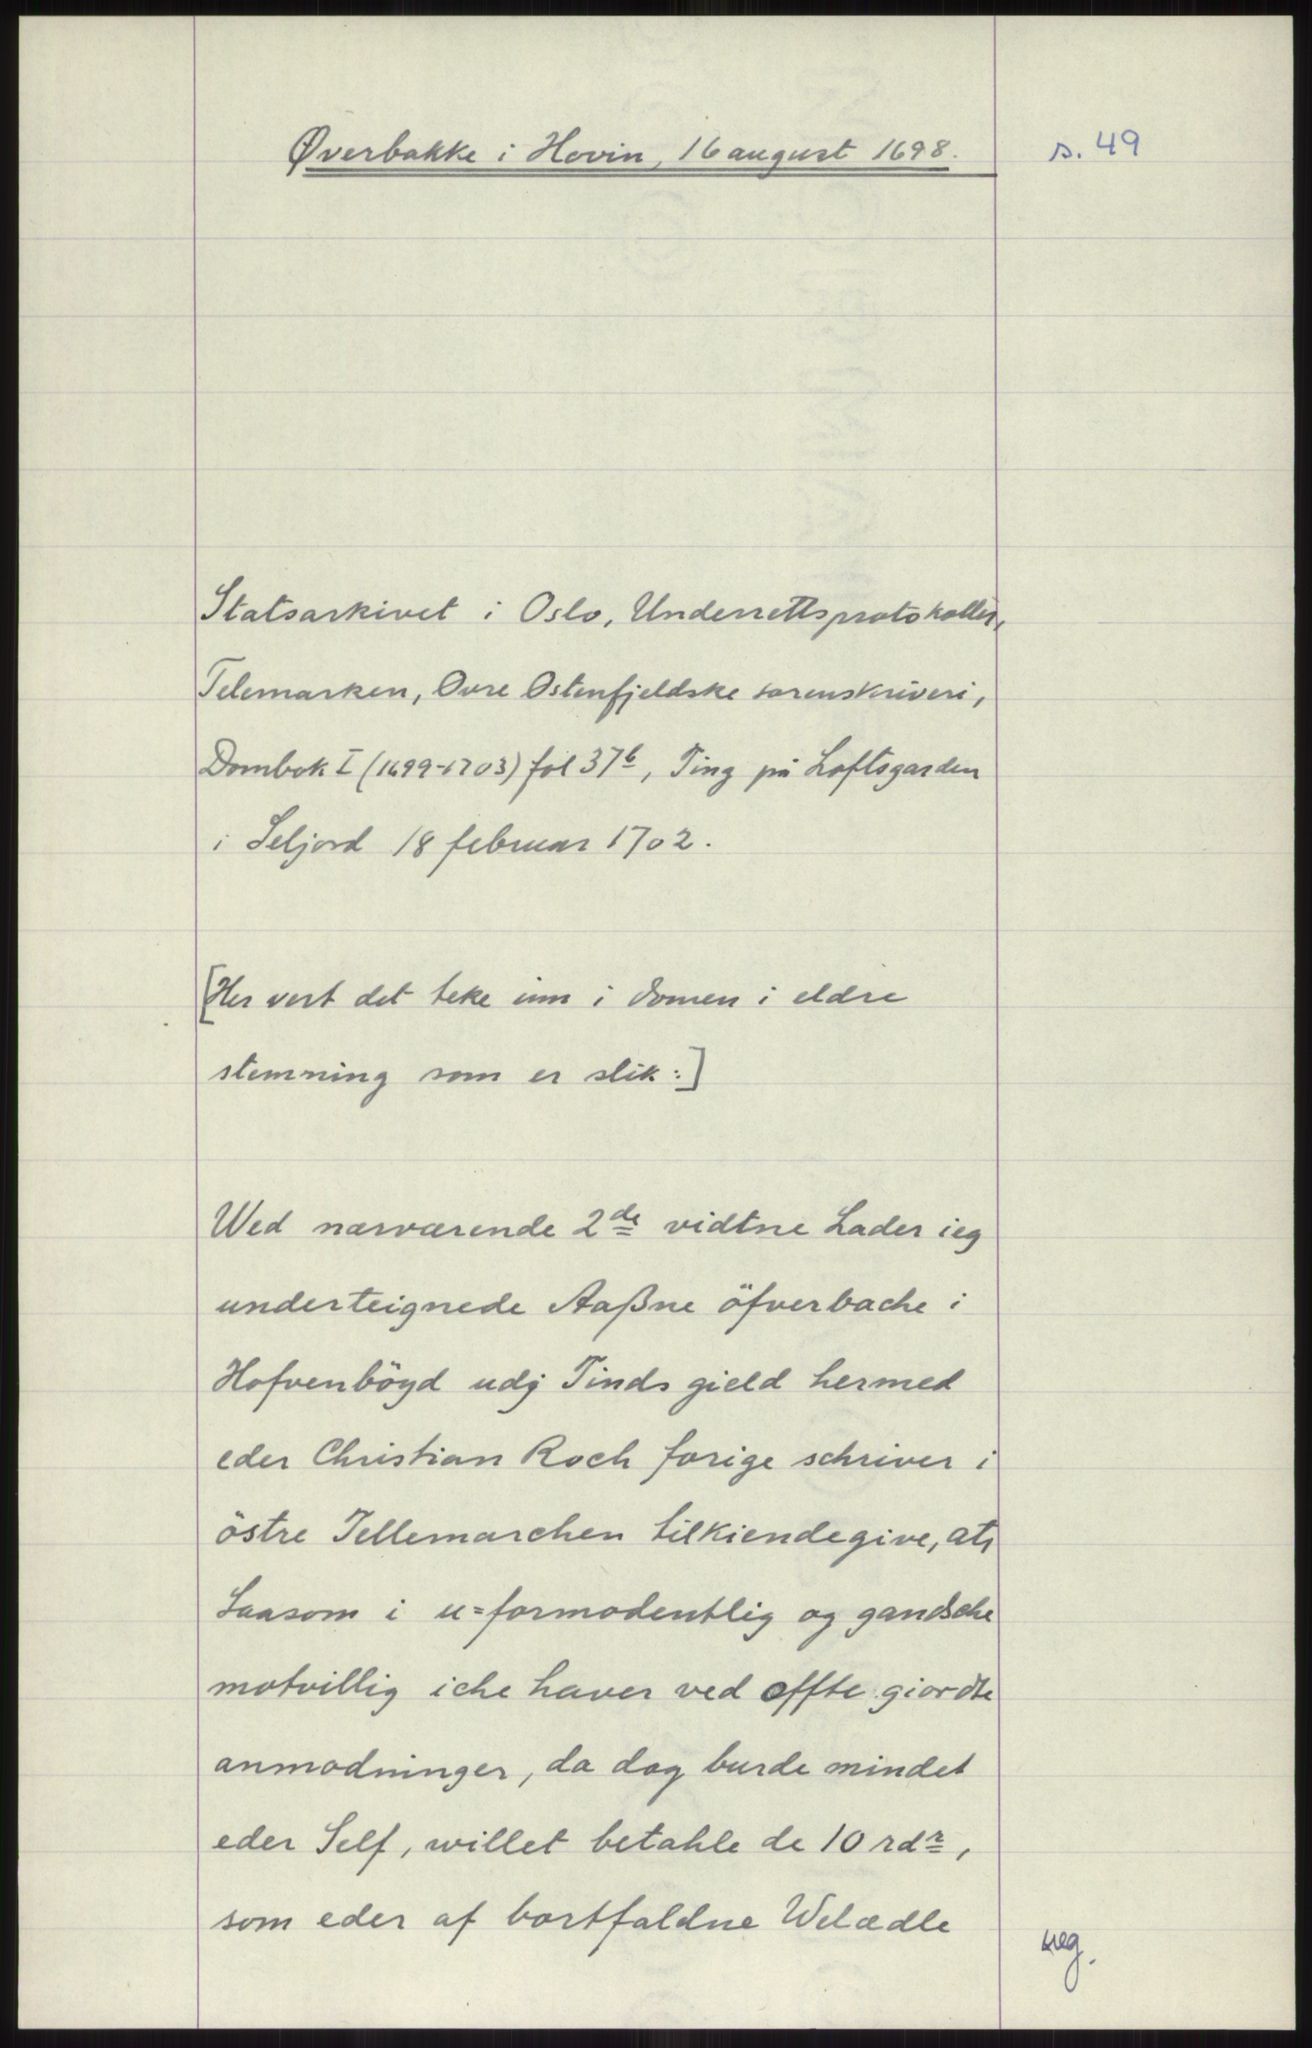 Øverbakke i Hovin, 16 august 1698.
s. 49
Statsarkivet i Oslo, Underrettsprotokoller,
Telemarken, Øvre Østenfjeldske sorenskriveri,
Dombok I (1699-1703) fol 37b, Ting på Loftsgarden
i Seljord 18 februar 1702.
[Her vert det teke inn i domen i eldre
stemning som er slik:]
Wed nærværende 2de vidtne Lader ieg
underteignede Aaßne öfverbache i
Hofvenbögd udj Tinds gield hermed
eder Christian Koch forige schriver i
östre Tellemarchen tilkiendegive, at,
Saasom i u=formodentlig og gandsche
motvillig iche haver ved offte giordte
anmodninger, da dog burde mindet
eder Self, willet betahle de 10 rdr,
som eder af bortfaldne Welædle
reg.